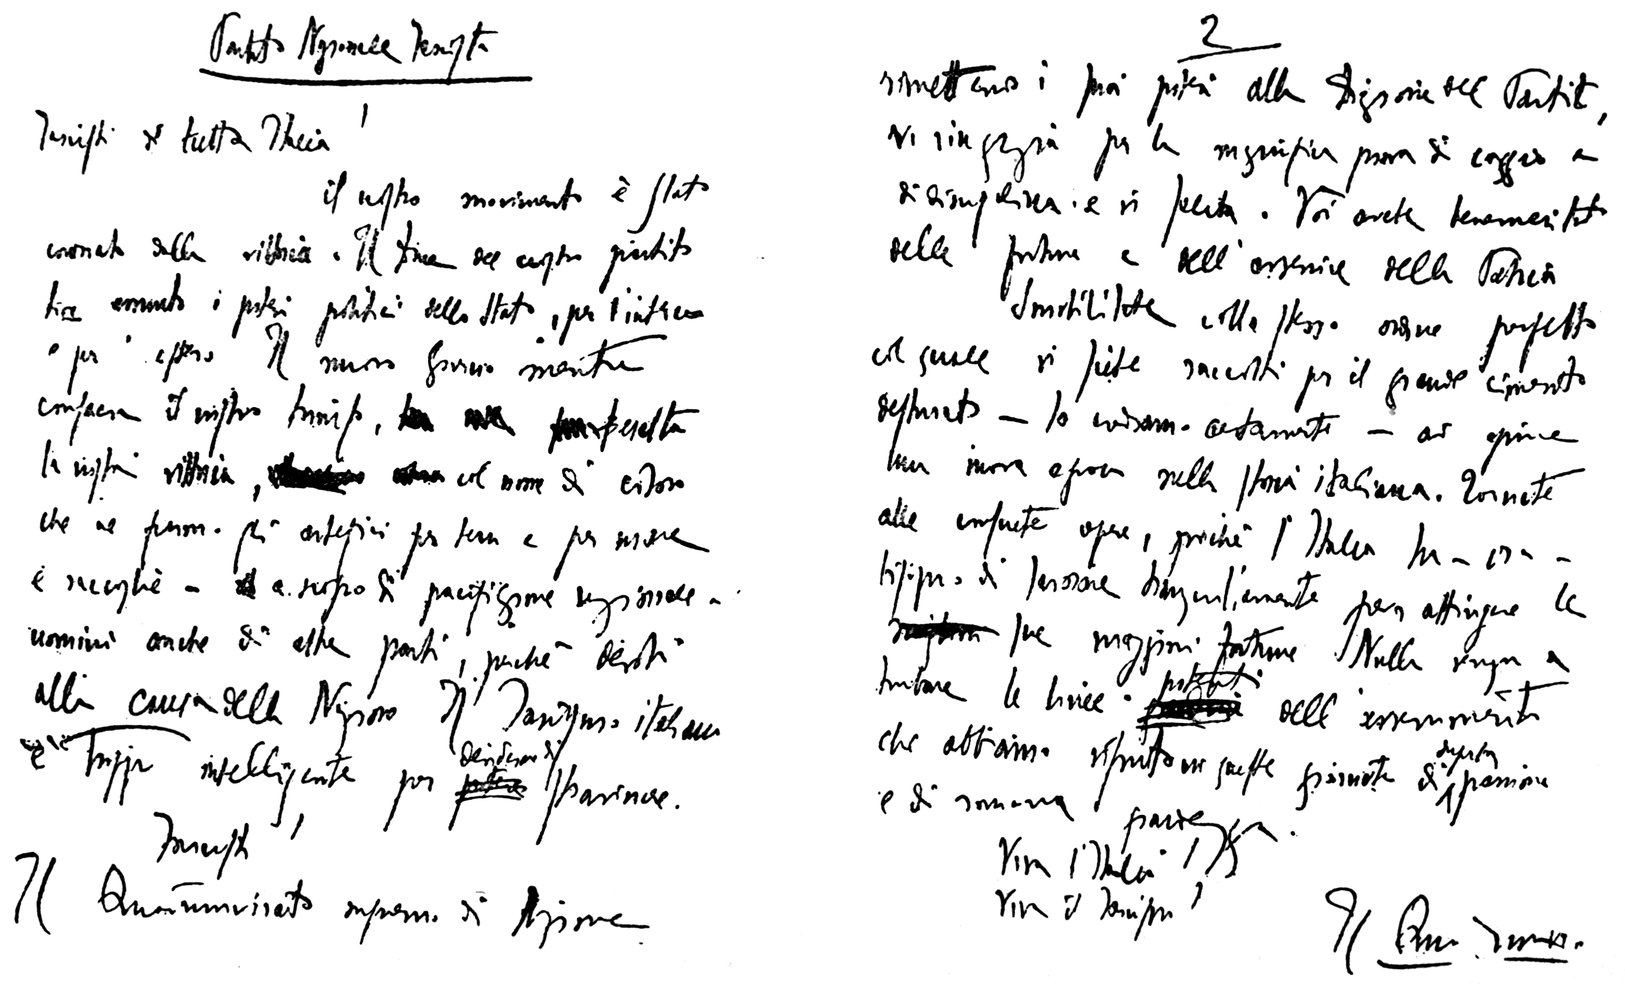 Partito Nazionale Fascista
Fascisti di tutta Italia!
il nostro movimento è stato
coronato dalla vittoria. Il Duce del nostro partito
ha assunto i poteri politici dello Stato, per l'interno
e per l'estero. Il nuovo Governo mentre
consacra il nostro trionfo,
la nostra vittoria, col nome di coloro
che ne furono gli artefici per terra e per mare
e raccoglie - a scopo di pacificazione nazionale -
uomini anche di altre parti, perché devoti
alla causa della Nazione. Il Fascismo italiano
è troppo intelligente per desiderare di stravincere.
Fascisti!
Il Quadrumvirato supremo di Azione
2
rimettendo i suoi poteri alla Direzione del Partito,
vi ringrazia per la magnifica prova di coraggio e
di disciplina e vi saluta. Voi avete benemeritato
delle fortune e dell'avvenire della Patria
Smobilitate collo stesso ordine perfetto
col quale vi siete raccolti per il grande cimento
destinato - lo crediamo certamente - ad aprire
una nuova epoca nella storia italiana. Tornate
alle consuete opere, poiché l'Italia ha - ora -
bisogno di lavorare tranquillamente per attingere le
sue maggiori fortune Nulla venga a
turbare le linee potenti dell'
che abbiamo in queste giornate di superba passione
e di romana grandezza.
Viva l'Italia!
Viva il Fascismo!
Il